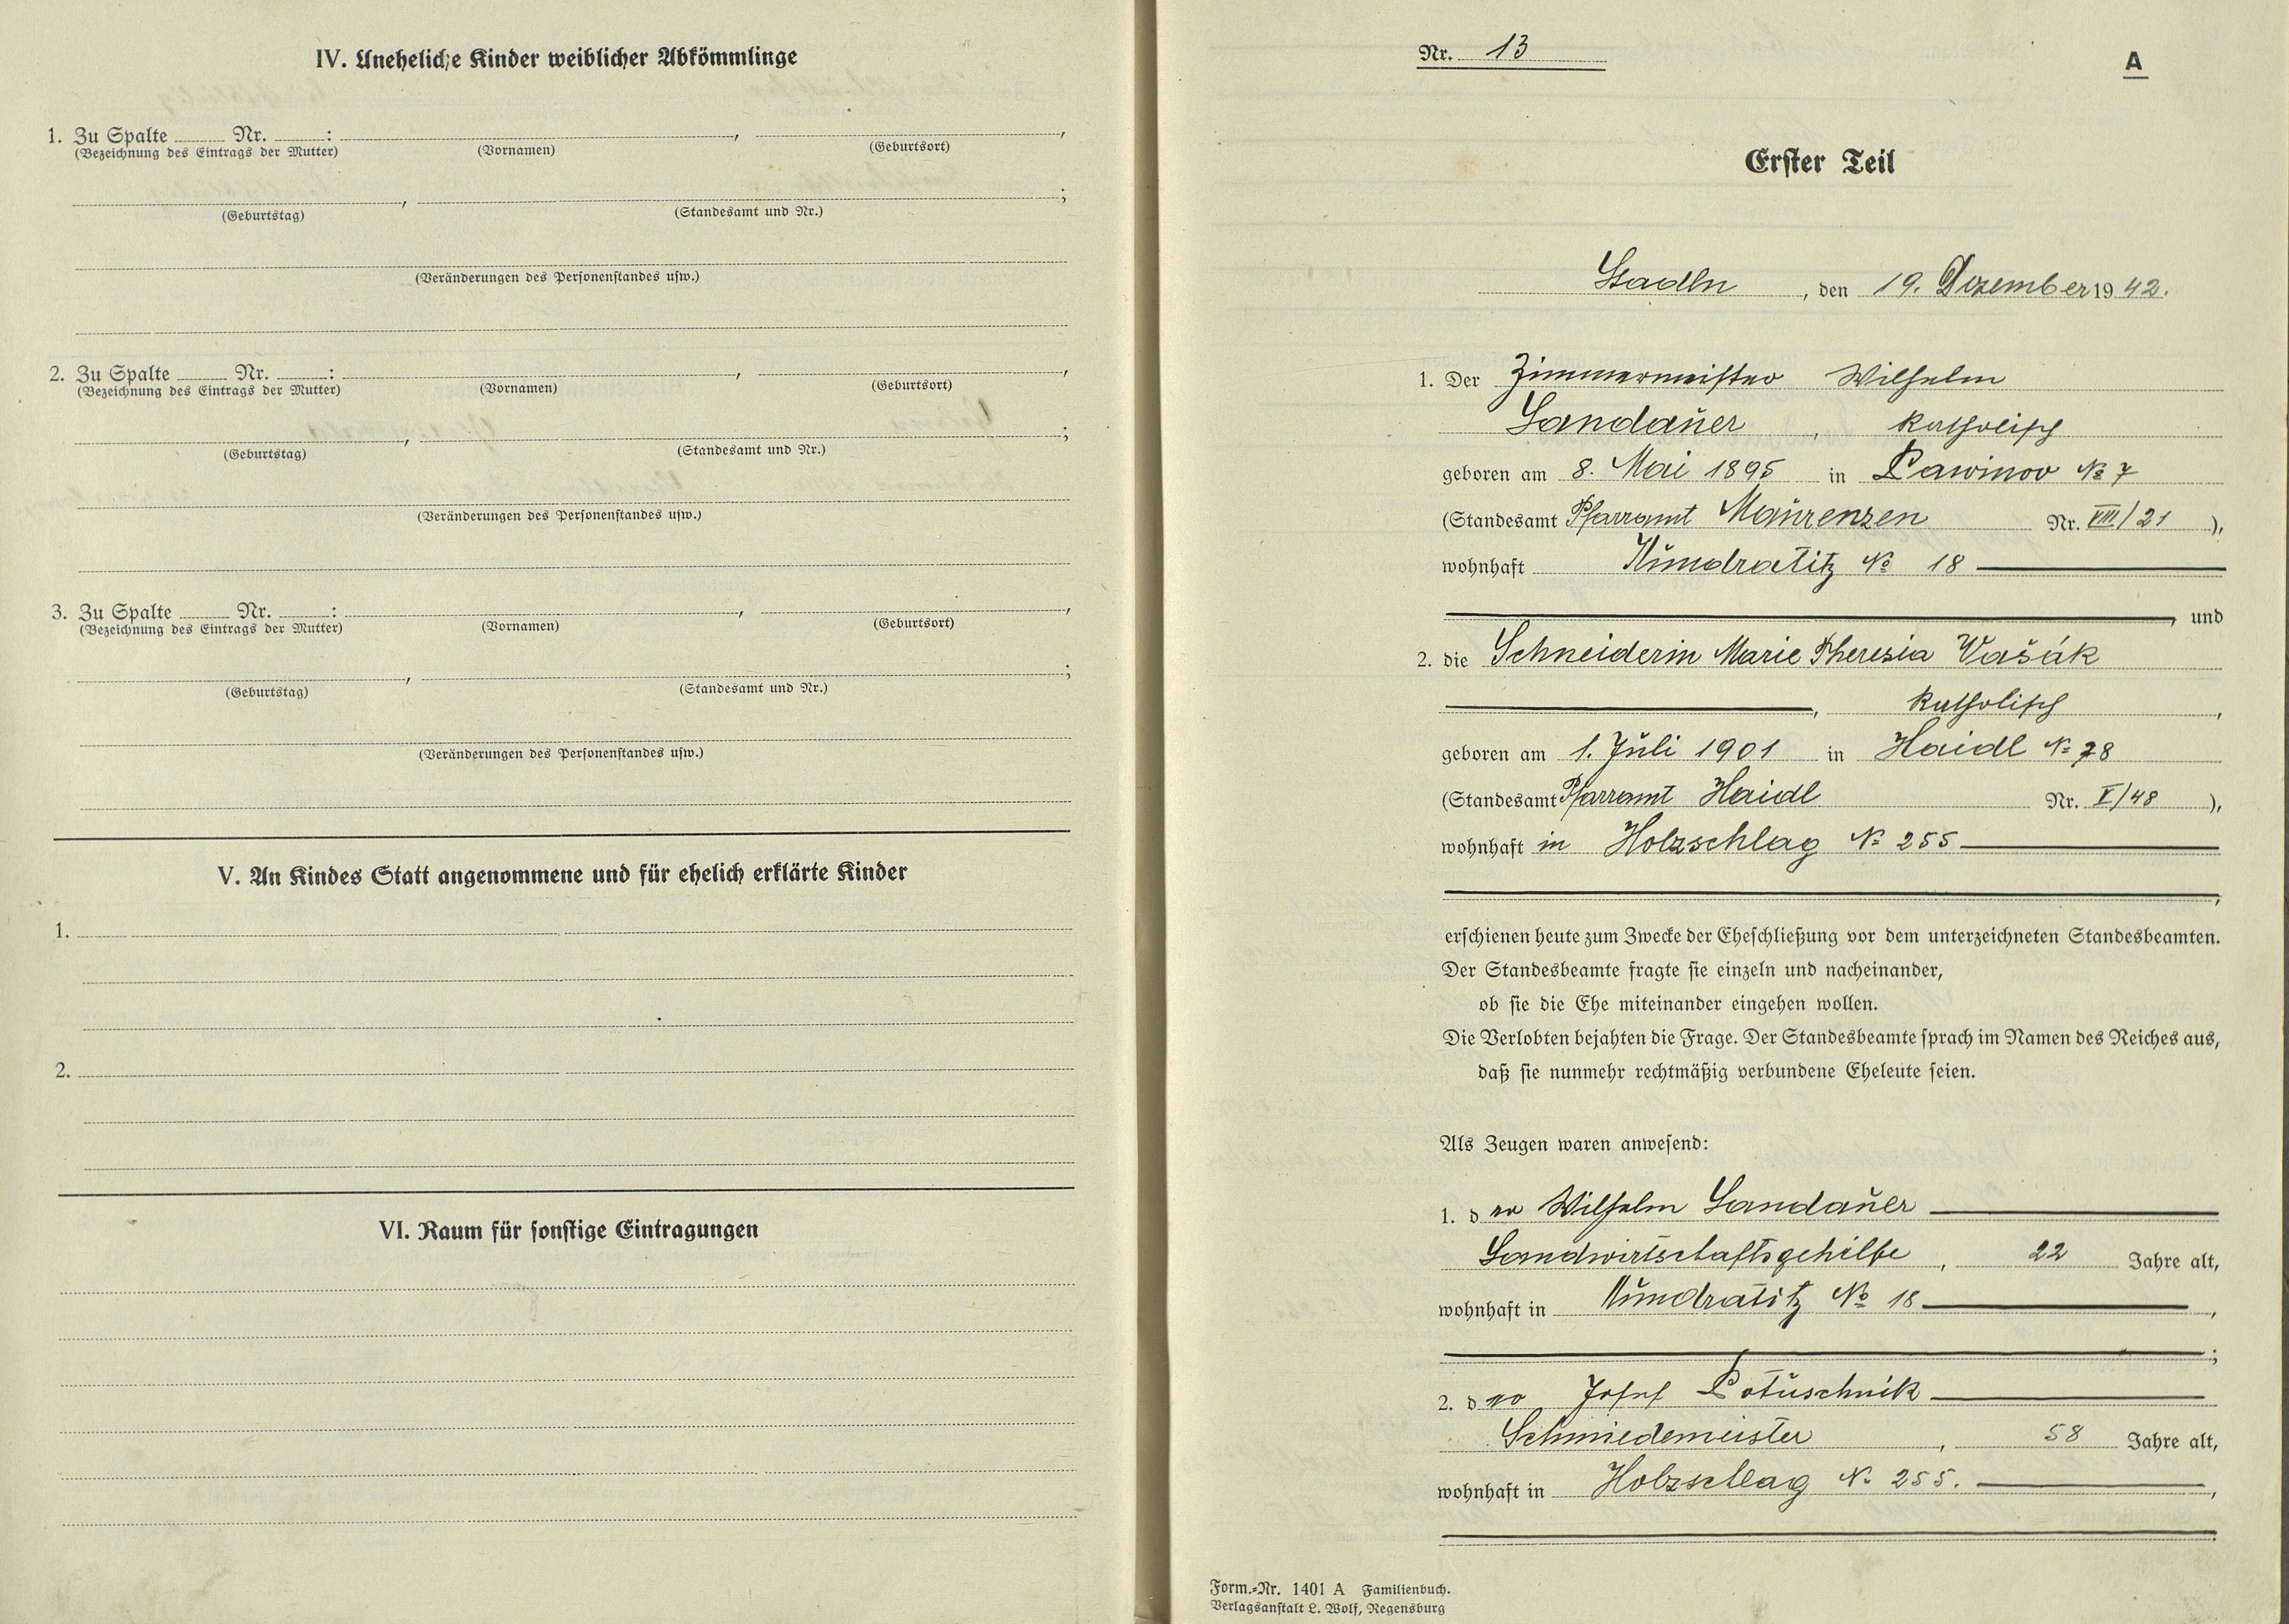 IV. Uneheliche Kinder weiblicher Abkömmlinge
1. Zu Spalte Nr. : , ,
(Bezeichnung des Eintrags der Mutter) (Vornamen) (Geburtsort)
, ;
(Geburtstag) (Standesamt und Nr.)
(Veränderungen des Personenstandes usw.)
2. Zu Spalte Nr. : , ,
(Bezeichnung des Eintrags der Mutter) (Vornamen) (Geburtsort)
, ;
(Geburtstag) (Standesamt und Nr.)
(Veränderungen des Personenstandes usw.)
3. Zu Spalte Nr. : , ,
(Bezeichnung des Eintrags der Mutter) (Vornamen) (Geburtsort)
, ;
(Geburtstag) (Standesamt und Nr.)
(Veränderungen des Personenstandes usw.)
V. An Kindes Statt angenommene und für ehelich erklärte Kinder
1.
2.
VI. Raum für sonstige Eintragungen
Nr. 13
A
Erster Teil
Stadln, den 19. Dezember 1942.
1. Der Zimmermeister Wilhelm
Landauer, katholisch
geboren am 8. Mai 1895 in Pawinov № 7
(Standesamt Pfarramt Maurenzen Nr. VIII/21),
wohnhaft Kundratitz № 18
, und
2. die Schneiderin Marie Theresia Vašák
, katholisch,
geboren am 1. Juli 1901 in Haidl № 78
(Standesamt Pfarramt Haidl Nr. V/48),
wohnhaft in Holzschlag № 255
,
erschienen heute zum Zwecke der Eheschließung vor dem unterzeichneten Standesbeamten.
Der Standesbeamte fragte sie einzeln und nacheinander,
ob sie die Ehe miteinander eingehen wollen.
Die Verlobten bejahten die Frage. Der Standesbeamte sprach im Namen des Reiches aus,
daß sie nunmehr rechtmäßig verbundene Eheleute seien.
Als Zeugen waren anwesend:
1. der Wilhelm Landauer
Landwirtschaftsgehilfe, 22 Jahre alt,
wohnhaft in Kundratitz № 18,
;
2. der Josef Potuschnik
Schmiedemeister, 58 Jahre alt,
wohnhaft in Holzschlag № 255.,
.
Form.-Nr. 1401 A Familienbuch.
Verlagsanstalt L. Wolf, Regensburg